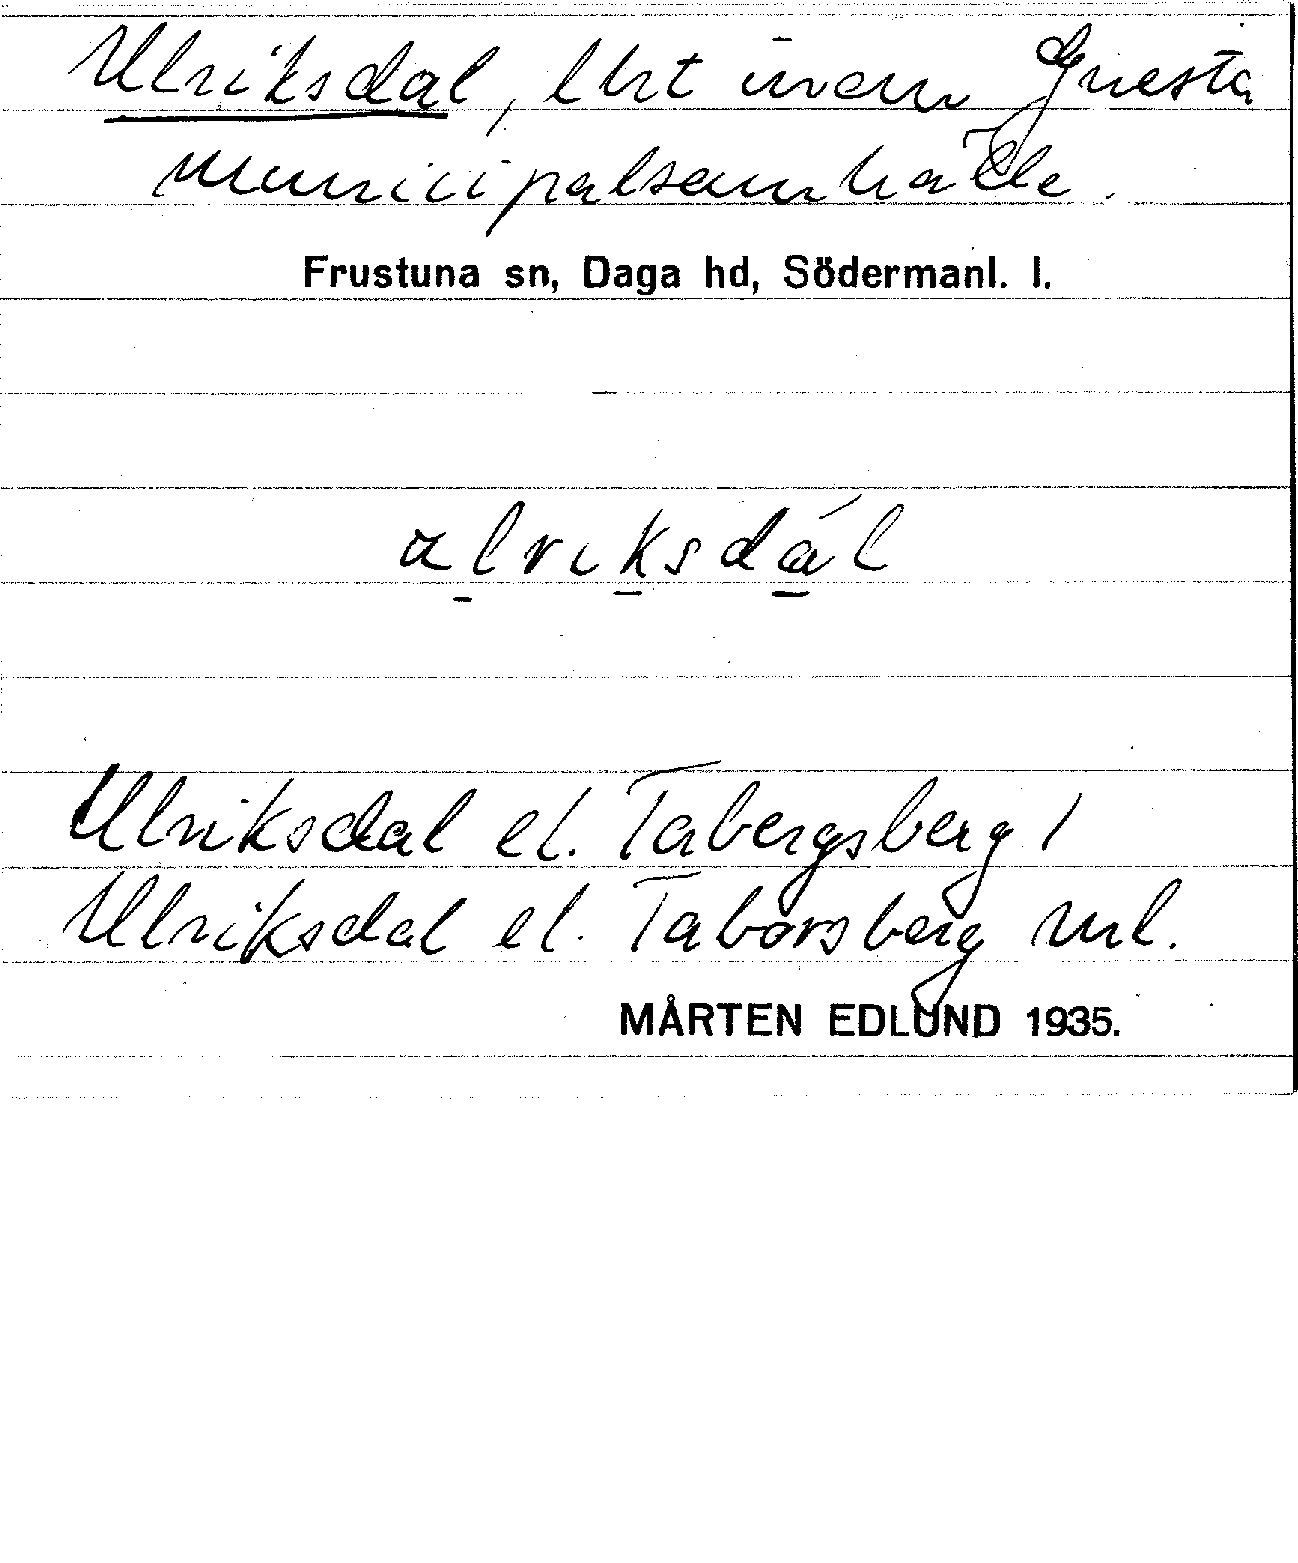 Ulriksdal, lht inom Gnesta
municipalsamhälle.
Frustuna sn, Daga hd, Södermanl. l.
ɑlriksdál
Ulriksdal el. Tabergsberg /
Ulriksdal el. Taborsberg ml.
MÅRTEN EDLUND 1935.